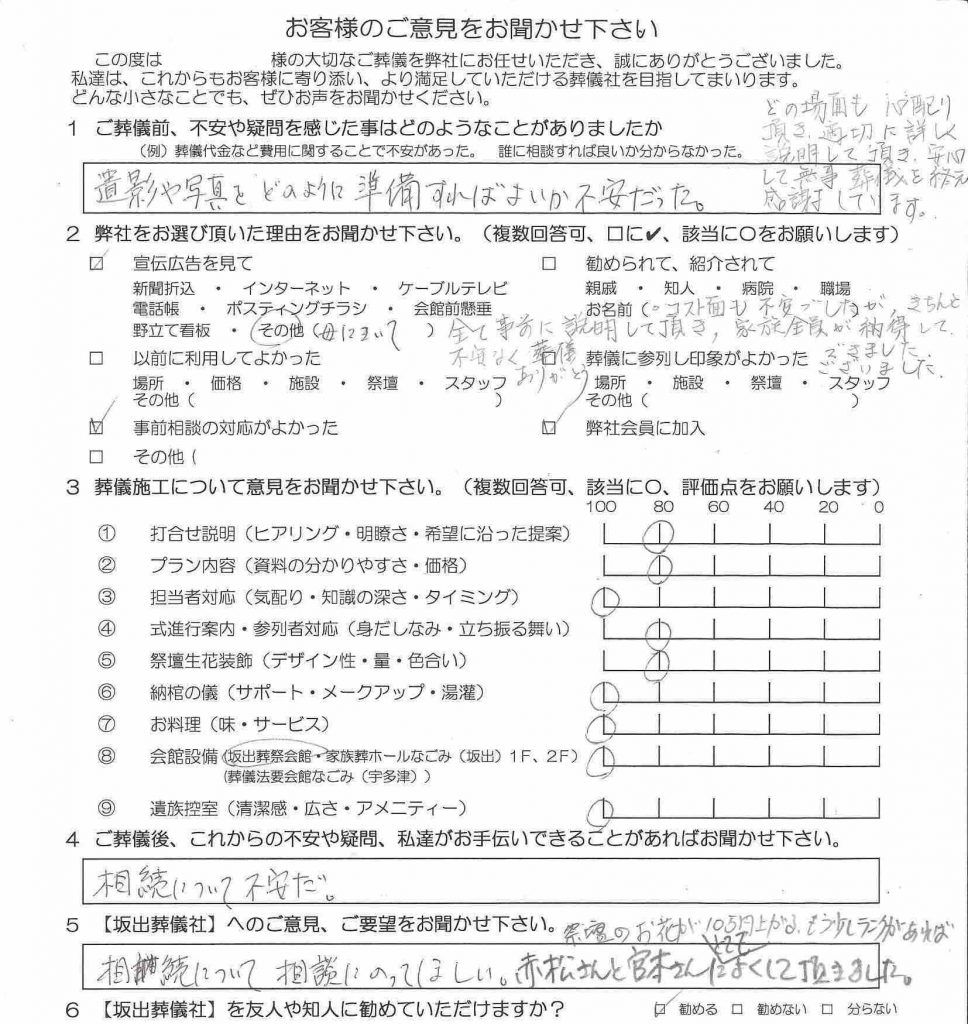 お客様のご意見をお聞かせ下さい
この度は 様の大切なご葬儀を弊社にお任せいただき、誠にありがとうございました。
私達は、これからもお客様に寄り添い、より満足していただける葬儀社を目指してまいります。
どんな小さなことでも、ぜひお声をお聞かせください。
どの場面も心配り
頂き、適切に詳しく
説明して頂き、安心
して無事葬儀を終え
感謝しています。
1 ご葬儀前、不安や疑問を感じた事はどのようなことがありましたか
（例）葬儀代金など費用に関することで不安があった。 誰に相談すれば良いか分からなかった。
遺影や写真をどのように準備すればよいか不安だった。
2 弊社をお選び頂いた理由をお聞かせ下さい。（複数回答可、口に✔、該当に〇をお願いします）
☑ 宣伝広告を見て
新聞折込 ・ インターネット ・ ケーブルテレビ
電話帳 ・ ポスティングチラシ ・ 会館前懸垂
野立て看板 ・ その他（母において ）
□ 勧められて、紹介されて
親戚 ・ 知人 ・ 病院 ・ 職場
お名前（
コスト面も不安でしたが、きちんと
全て事前に説明して頂き、家族全員が納得して、
不安なく葬儀 できました。
ありがとう ございました。
□ 以前に利用してよかった
場所 ・ 価格 ・ 施設 ・ 祭壇 ・ スタッフ
その他（ ）
□ 葬儀に参列し印象がよかった
場所 ・ 施設 ・ 祭壇 ・ スタッフ
その他（ ）
☑ 事前相談の対応がよかった
☑ 弊社会員に加入
□ その他（
3 葬儀施工について意見をお聞かせ下さい。（複数回答可、該当に〇、評価点をお願いします）
100 80 60 40 20 0
① 打合せ説明（ヒアリング・明瞭さ・希望に沿った提案）
② プラン内容（資料の分かりやすさ・価格）
③ 担当者対応（気配り・知識の深さ・タイミング）
④ 式進行案内・参列者対応（身だしなみ・立ち振る舞い）
⑤ 祭壇生花装飾（デザイン性・量・色合い）
⑥ 納棺の儀（サポート・メークアップ・湯灌）
⑦ お料理（味・サービス）
⑧ 会館設備（坂出葬祭会館・家族葬ホールなごみ（坂出）1F、2F）
（葬儀法要会館なごみ（宇多津））
⑨ 遺族控室（清潔感・広さ・アメニティー）
4 ご葬儀後、これからの不安や疑問、私達がお手伝いできることがあればお聞かせ下さい。
相続について不安だ。
5 【坂出葬儀社】へのご意見、ご要望をお聞かせ下さい。
祭壇のお花が10万円上がる、もう少しランクがあれば
相続について相談にのってほしい。赤松さんと宮本さんにとてもよくして頂きました。
6 【坂出葬儀社】を友人や知人に勧めていただけますか？
☑ 勧める □ 勧めない □ 分らない